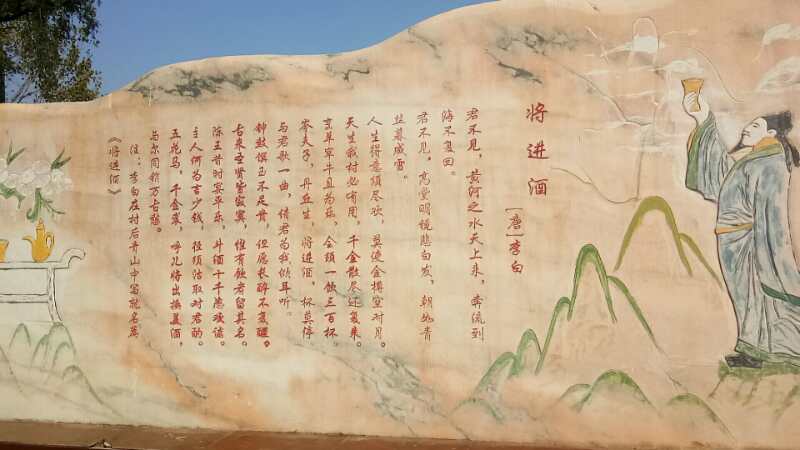 将进酒
[唐]李白
君不见，黄河之水天上来，奔流到
海不复回。
君不见，高堂明镜悲白发，朝如青
丝暮成雪。
人生得意须尽欢，莫使金樽空对月。
天生我材必有用，千金散尽还复来。
烹羊宰牛且为乐，会须一饮三百杯。
岑夫子，丹丘生，将进酒，杯莫停
与君歌一曲，请君为我倾耳听。
钟鼓馔玉不足贵，但愿长醉不复醒。
古来圣贤皆寂寞，惟有饮者留其名。
陈王昔时宴平乐，斗酒十千恣欢谑。
主人何为言少钱，径须沽取对君酌。
五花马，千金裘，呼儿将出换美酒，
与尔同销万古愁。
注：李白在村后青山中写就名篇
《将进酒》